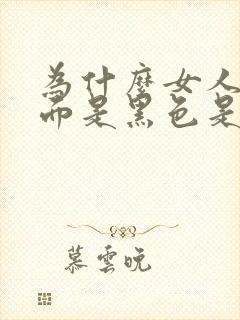 為什麼女人
而是黑色是
慕雲晚